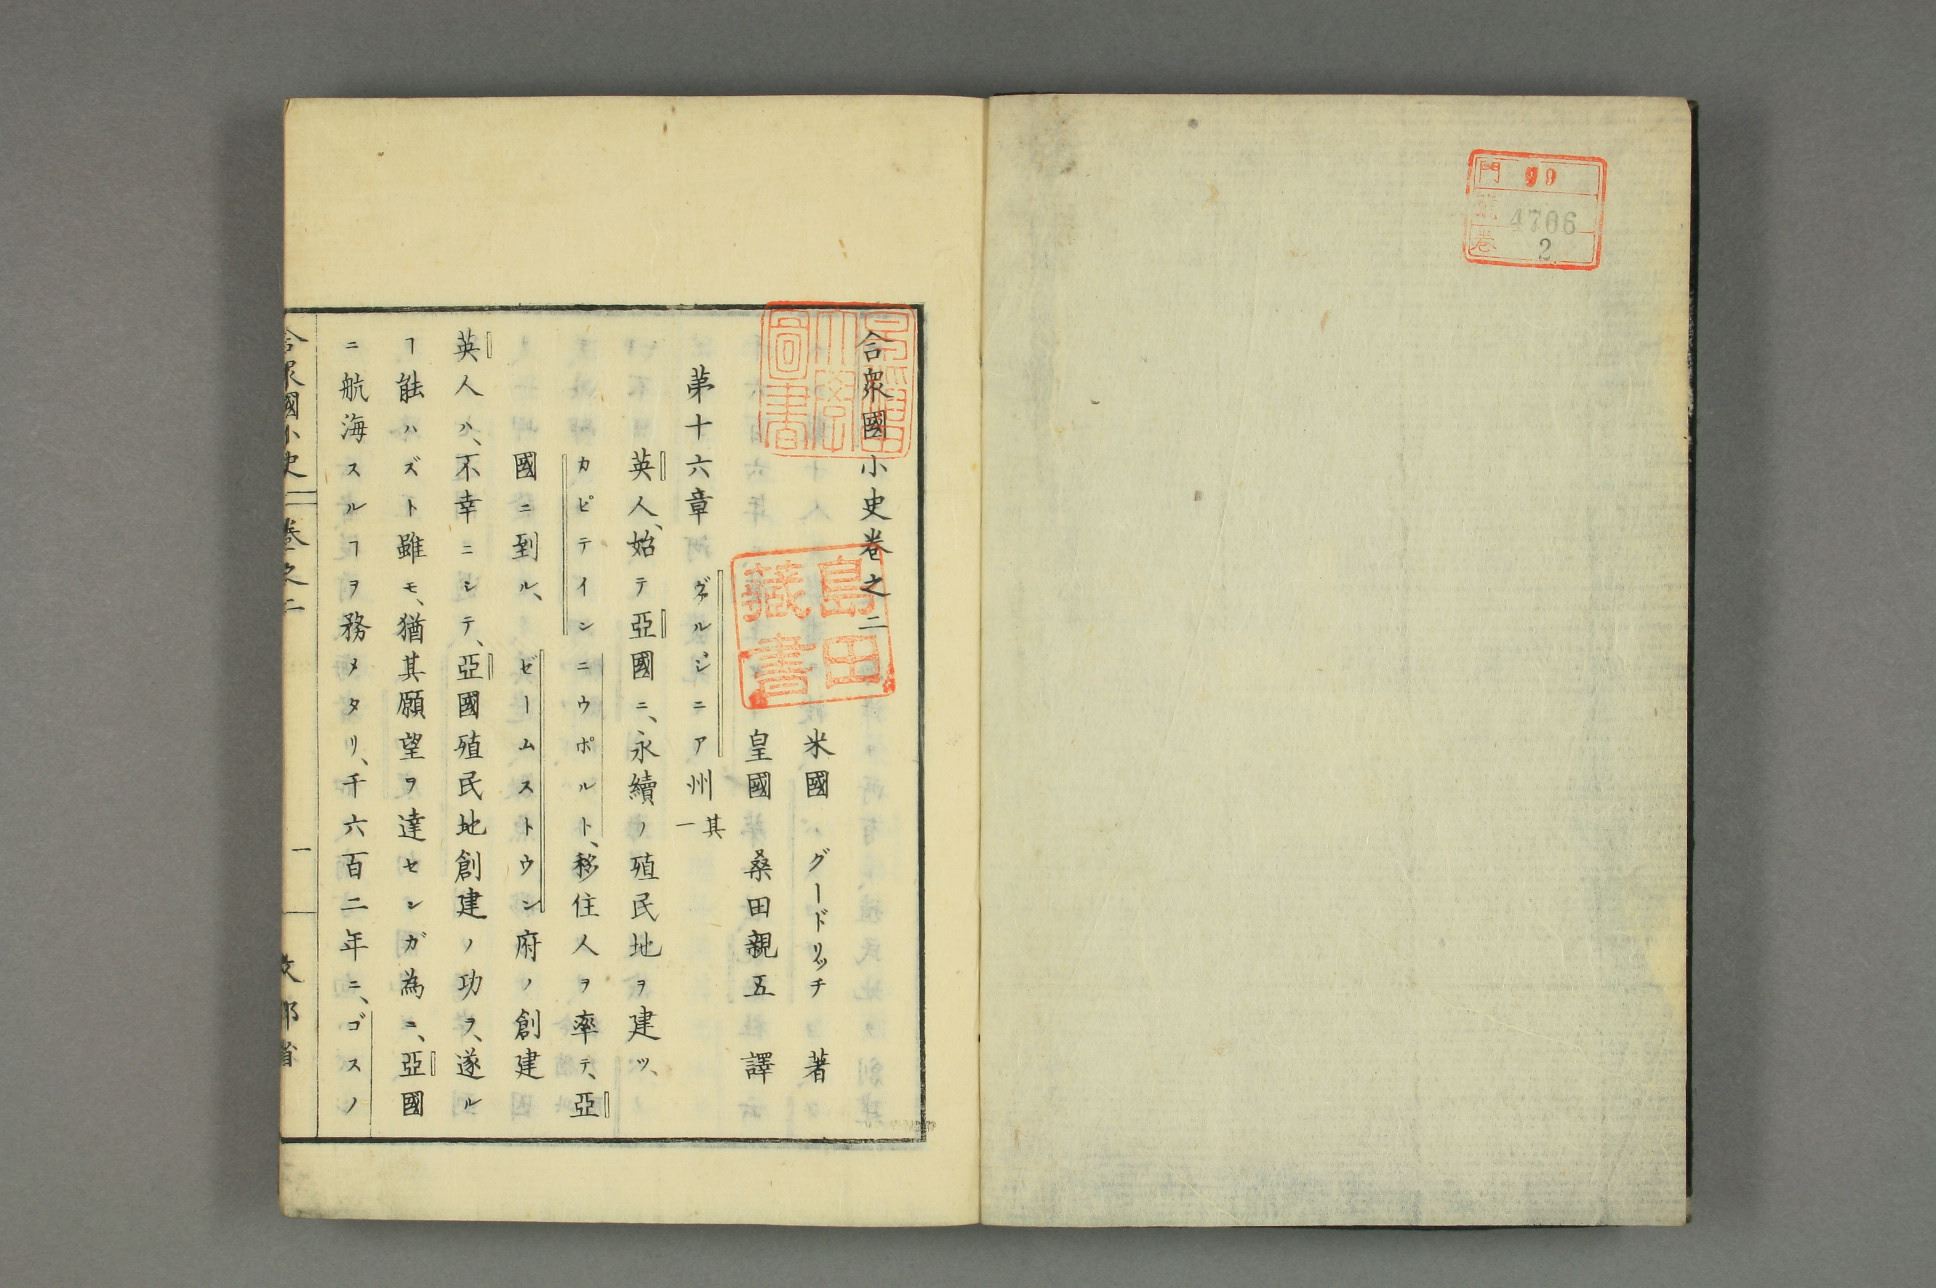 門 99
4706
巻 2
合衆國小史卷之二
米國 グードリッチ 著
皇國 桑田親五 譯
第十六章 ヴァルジニア州 其一
英人、始テ亞國ニ、永續ノ殖民地ヲ建ツ、
カピテインニウポルト、移住人ヲ率テ、亞
國ニ到ル、ゼームストウン府ノ創建
英人ハ、不幸ニシテ、亞國殖民地創建ノ功ヲ、遂ル
ヿ能ハズト雖モ、猶其願望ヲ達センガ為ニ、亞國
ニ航海スルヿヲ務メタリ、千六百二年ニ、ゴスノ
合衆國小史 卷之二
一
文部省
島田藏書
圖書